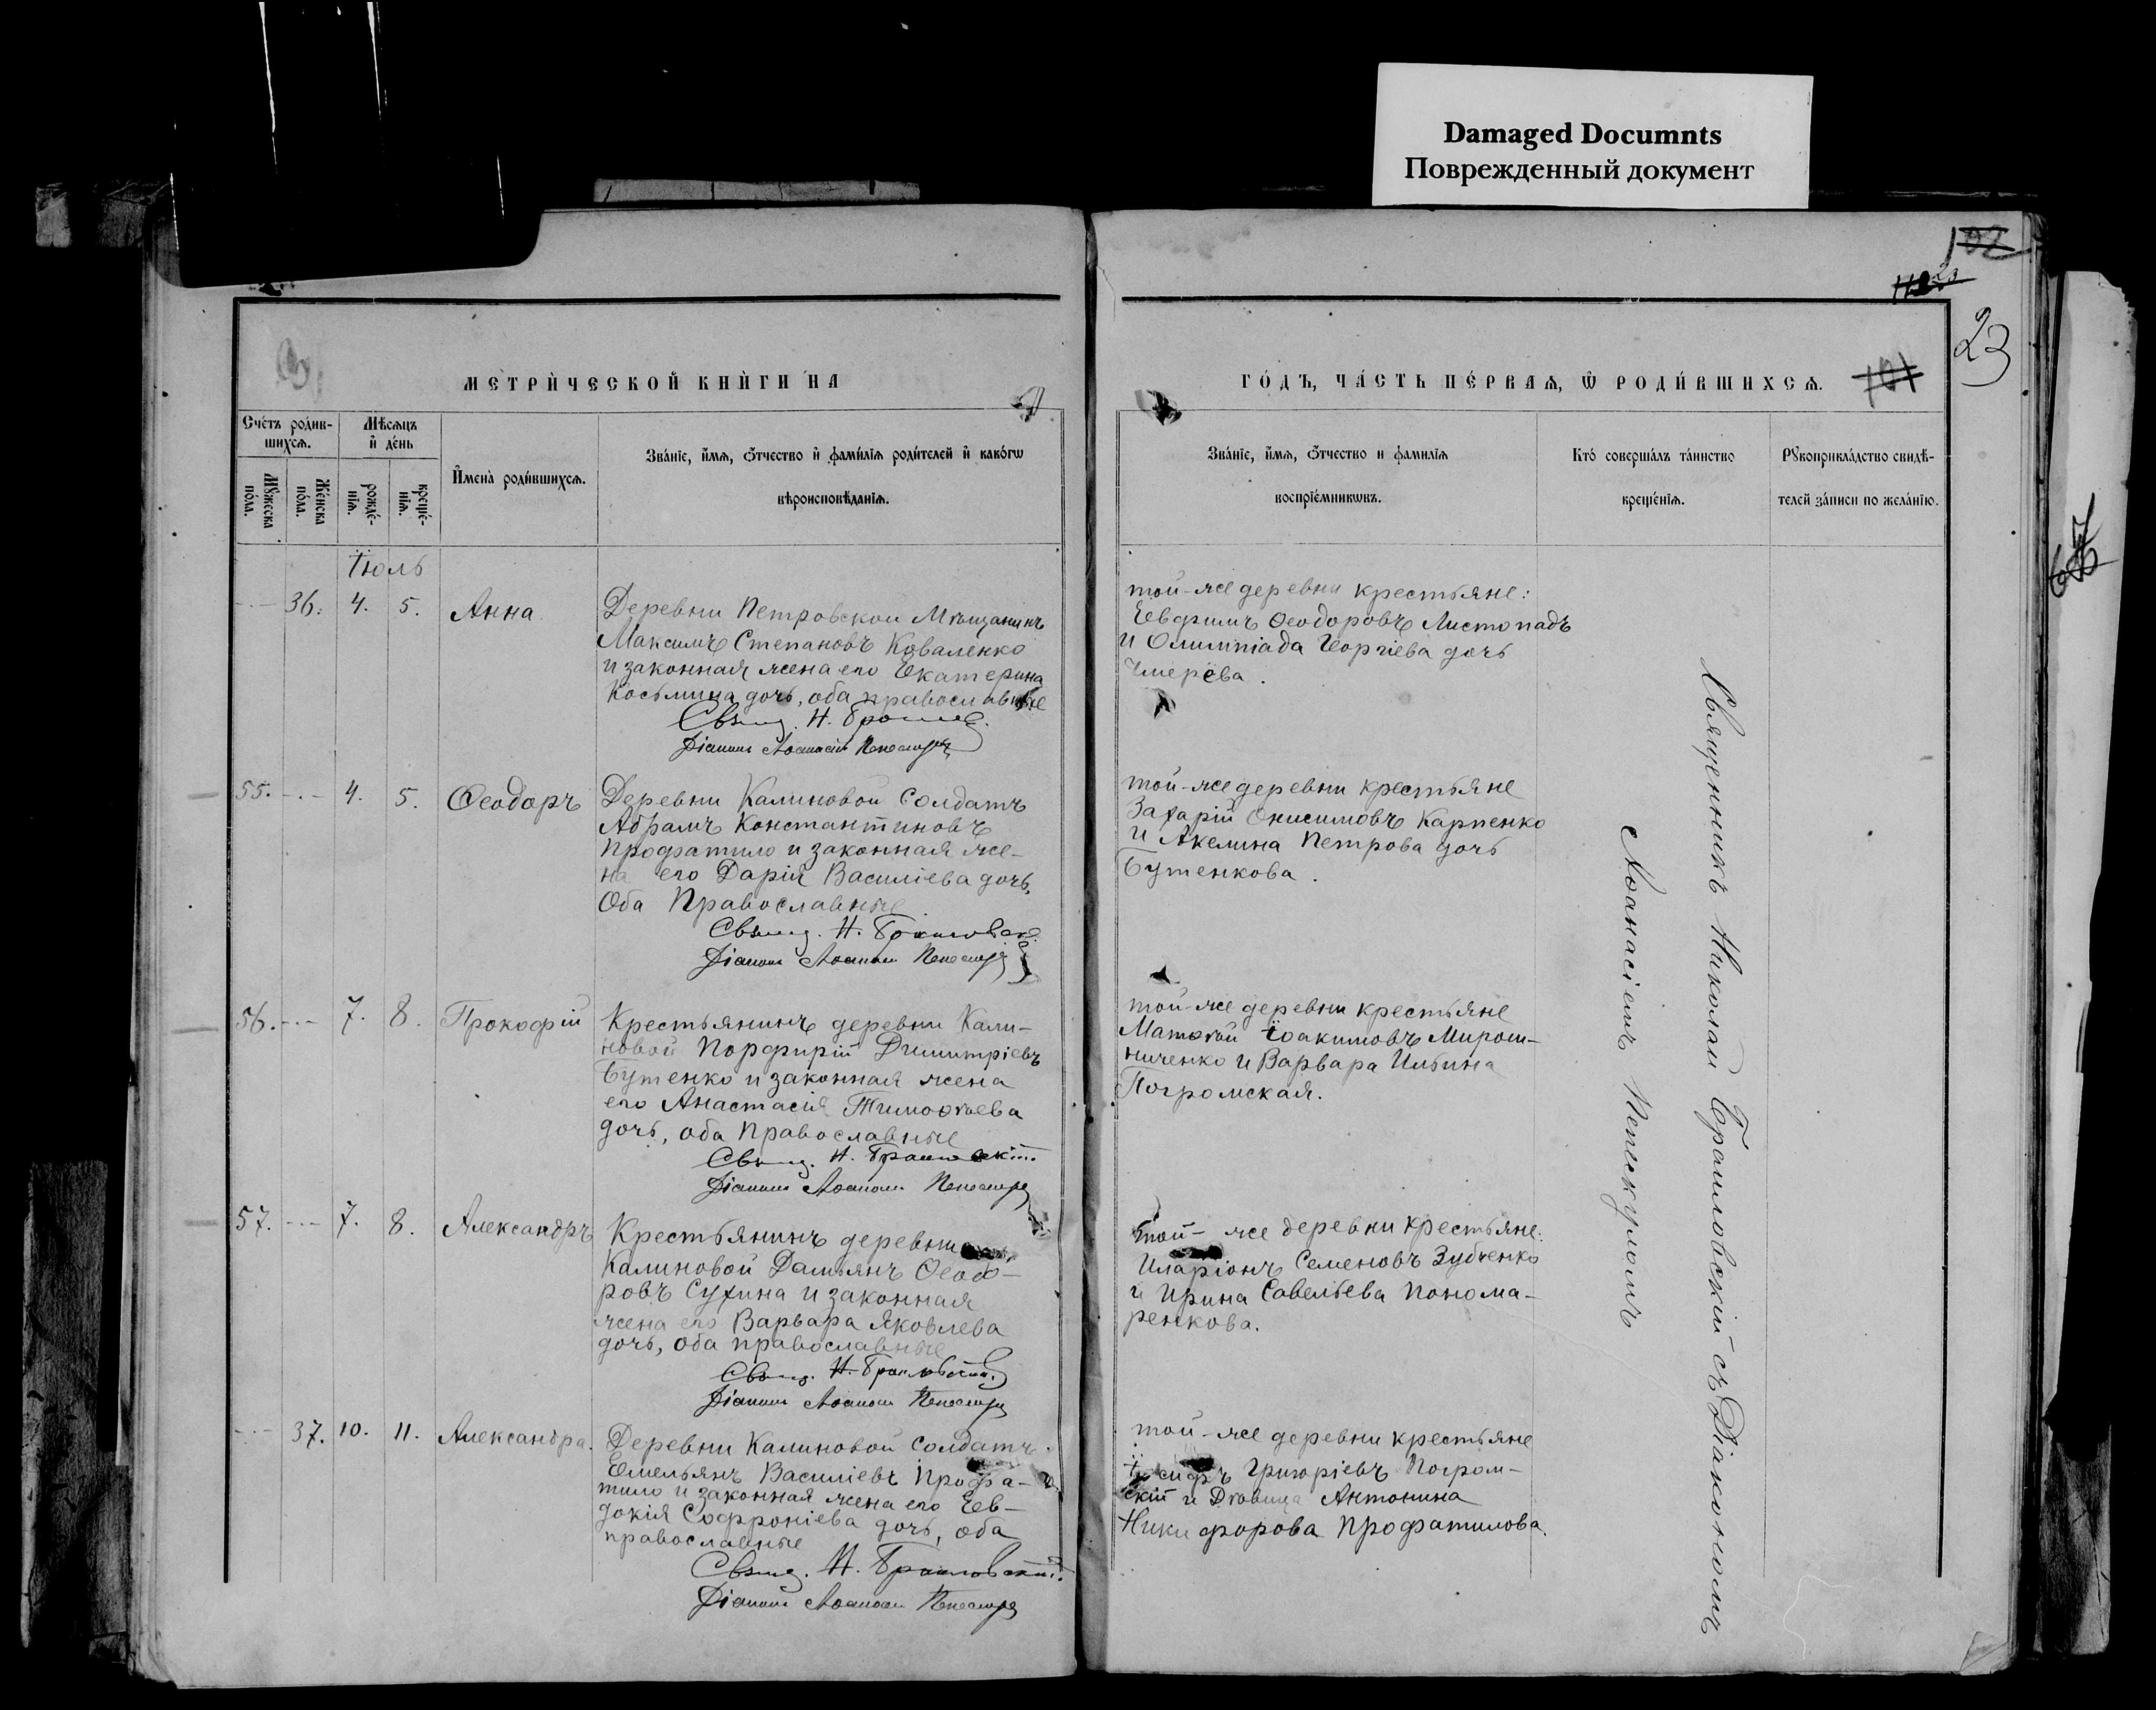 Damaged Documnts
Поврежденный документ
23
МЕТРИ́ЧЕСКОЙ КНИ́ГИ НА
ГО́ДЪ, ЧА́СТЬ ПЕ́РВАѦ, Ѡ РОДИ́ВШИХСѦ.
101
Сче́тъ роди́в-
шихсѧ.
Мѣ́сѧцъ
и҆ де́нь
Мꙋжеска
по́ла.
Же́нска
по́ла.
рожде́-
нїѧ.
креще́-
нїѧ.
И҆мена̀ роди́вшихсѧ.
Зва́нїе, и҆́мѧ, ѻ҆́тчество и҆ фами́лїѧ роди́телей и҆ како́гѡ
вѣроисповѣ́данїѧ.
Зва́нїе, и҆́мѧ, ѻ҆́тчество и фами́лїѧ
воспрїе́мникѡвъ.
Кто́ соверша́лъ та́инство
креще́нїѧ.
Рꙋкоприкла́дство свидѣ́-
телей за́писи по жела́нїю.
Іюль
36. 4. 5. Анна
Деревни Петровской Мѣщанинъ
Максимъ Степановъ Коваленко
и законная жена его Екатерина
Косьмина дочь, оба православные
Свящ. Н.
Діаконъ Аѳанасій
той-же деревни крестьяне:
Евфимъ Ѳеодоровъ Листопадъ
и Олимпіада Георгіева дочь
55. 4. 5. Ѳеодоръ
Деревни Калиновой Солдатъ
Абрамъ Константиновъ
Профатило и законная же-
на его Дарія Василіева дочь,
Оба Православные
Свящ. Н. Браиловскій
Діаконъ Аѳанасій
той-же деревни крестьяне
Захарій Онисимовъ Карпенко
и Акелина Петрова дочь
Бутенкова.
56. 7. 8. Прокофій
Крестьянинъ деревни Кали-
новой Порфирій Димитріевъ
Бутенко и законная жена
его Анастасія Тимоѳѣева
дочь, оба Православные
Свящ. Н. Браиловскій
Діаконъ Аѳанасій
той-же деревни крестьяне
Матѳѣй Іоакимовъ Мирош-
ниченко и Варвара Ильина
Погромская.
57. 7. 8. Александръ
Крестьянинъ деревни
Калиновой Дамьянъ Ѳеодо-
ровъ Сухина и законная
жена его Варвара Яковлева
дочь, оба православные
Свящ. Н. Браиловскій
Діаконъ Аѳанасій
той-же деревни крестьяне.
Иларіонъ Семеновъ Зубченко
и Ирина Савельева Понома-
ренкова.
37. 10. 11. Александра.
Деревни Калиновой Солдатъ
Емельянъ Василіевъ Профа-
тило и законная жена его Ев-
докія Софроніева дочь, оба
православные
Свящ. Н. Браиловскій
Діаконъ Аѳанасій
той-же деревни крестьяне
Іосифъ Григоріевъ Погром-
скій и Дѣвица Антонина
Никифорова Профатилова.
Священникъ Николай Браиловскій съ Діакономъ
Аѳанасіемъ